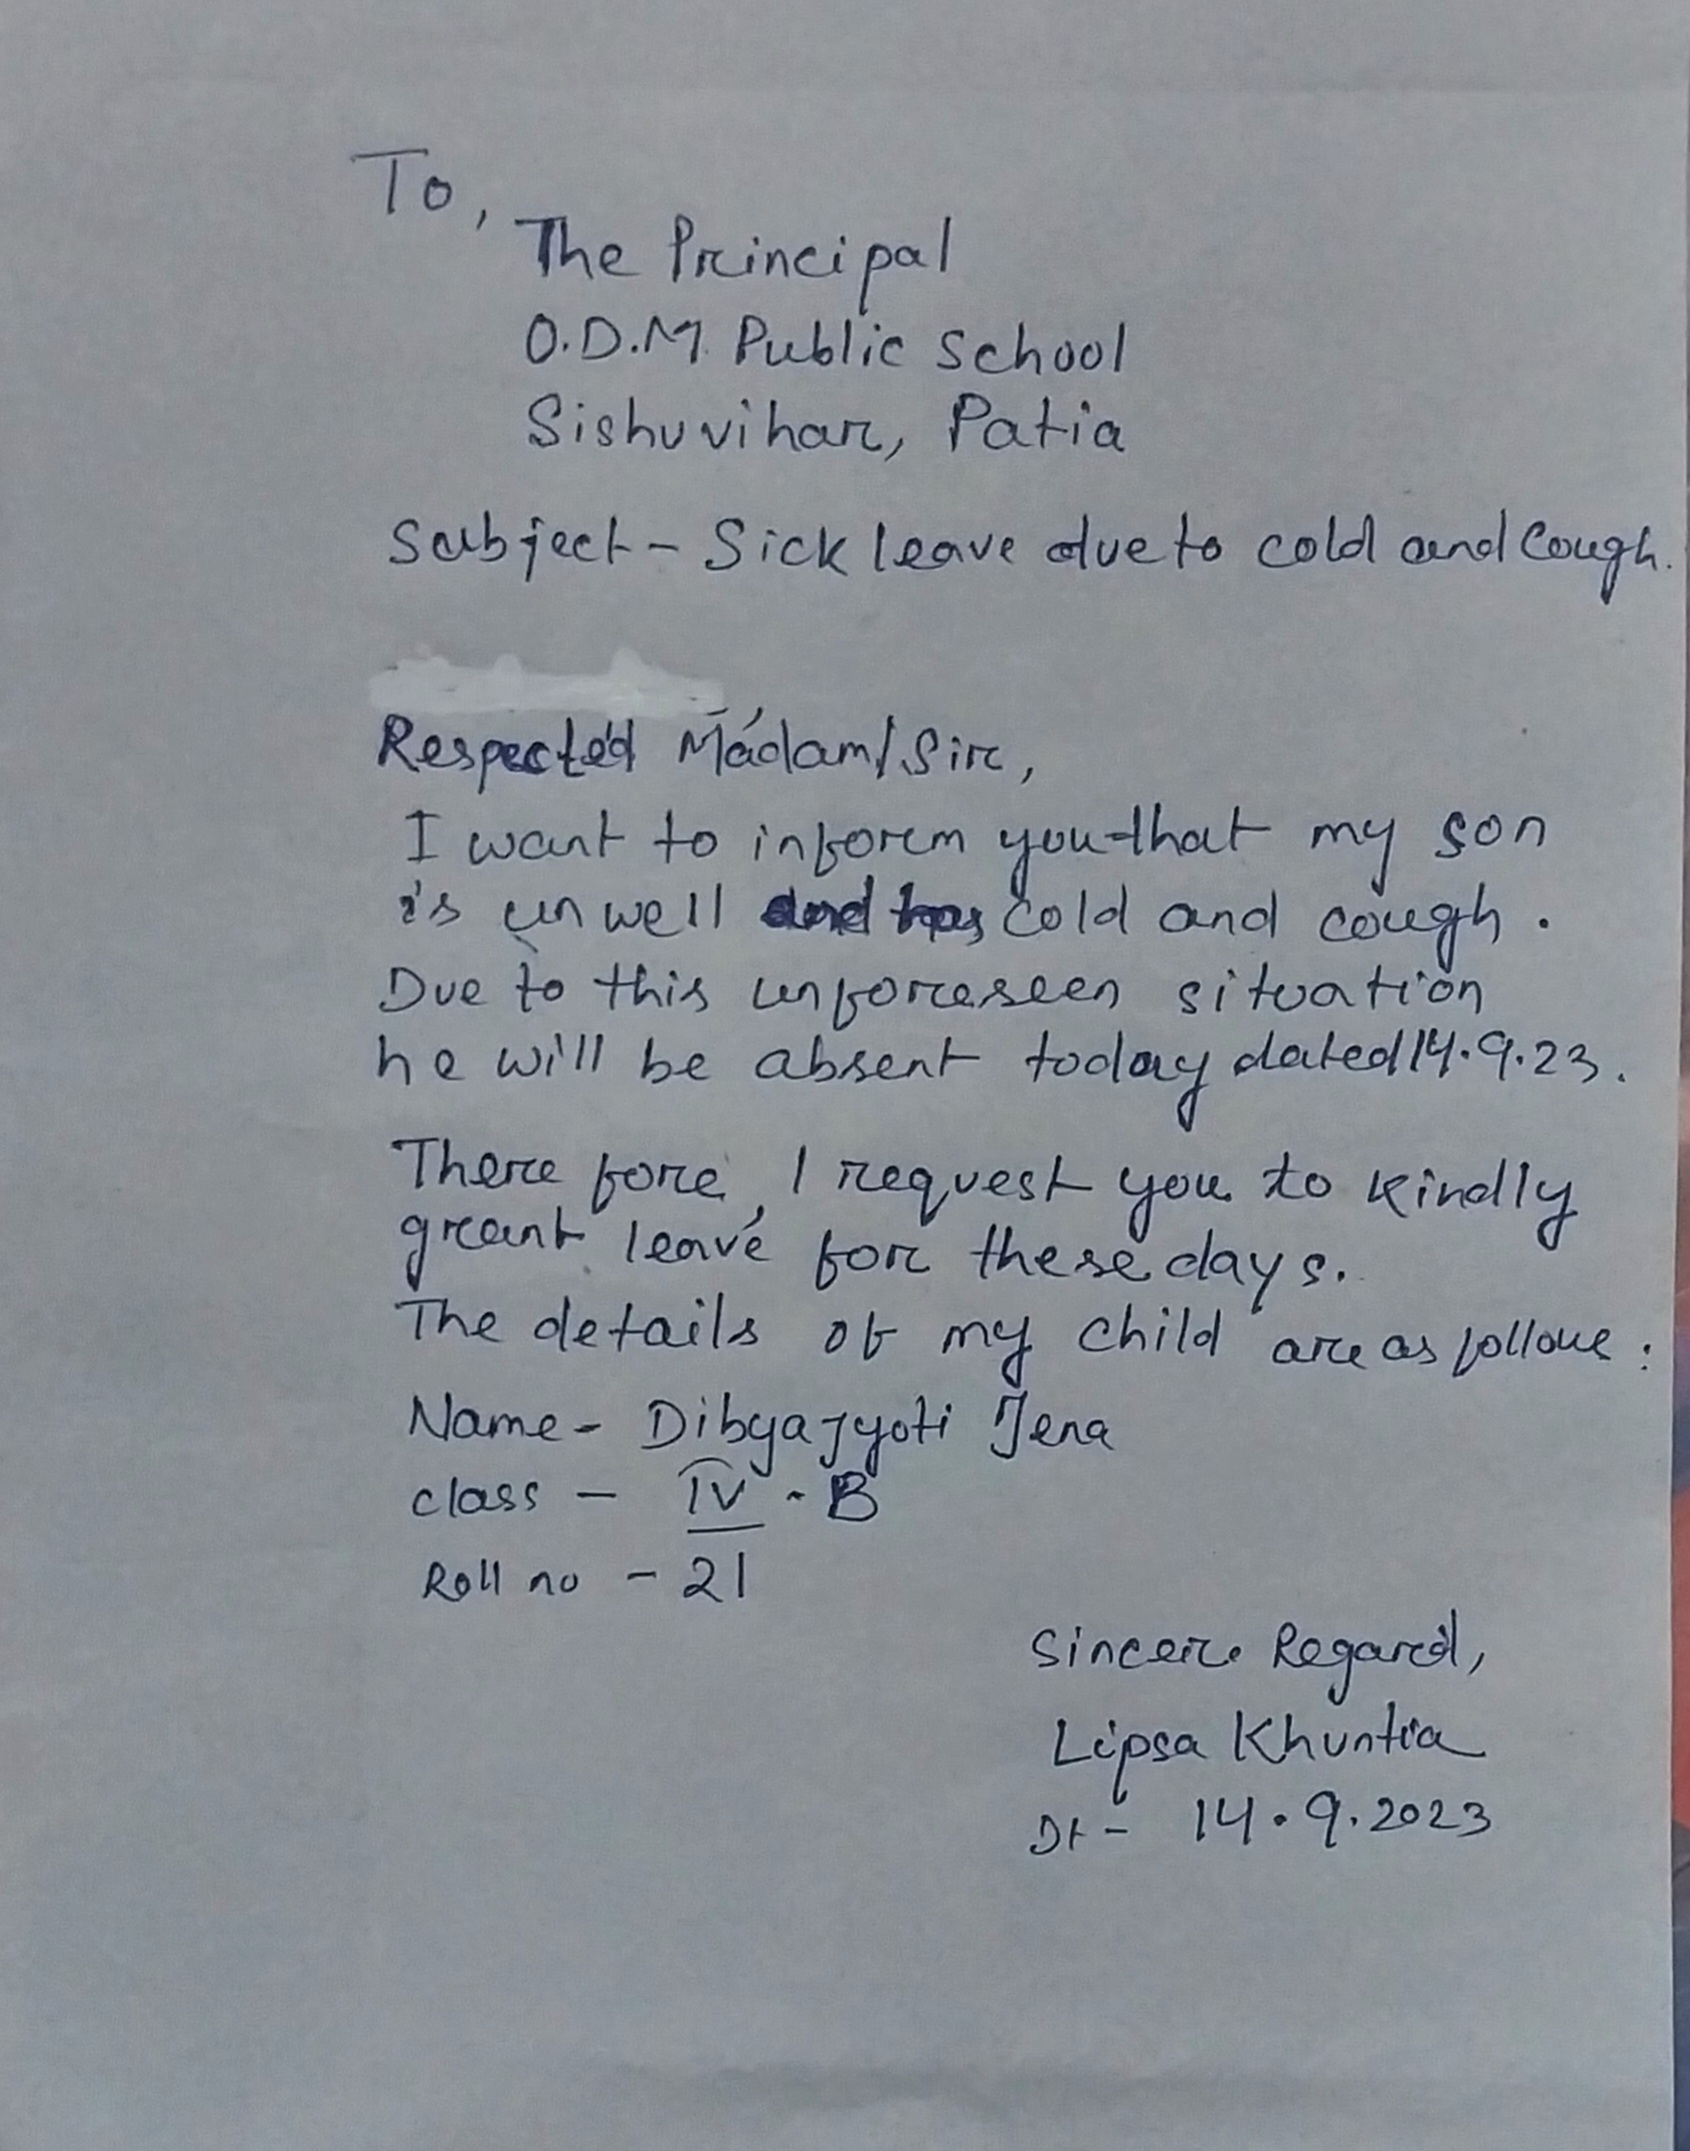 To,
The Principal
O.D.M. Public School
Sishuvihar, Patia
Subject - Sick leave due to cold and Cough.
Respected Madam/Sir,
I want to inform you that my son
is unwell and has cold and cough.
Due to this unforeseen situation
he will be absent today dated 14.9.23.
There fore, I request you to kindly
grant leave for these days.
The details of my child are as follows:
Name - Dibyajyoti Jena
class - IV - B
Roll no - 21
Sincere Regard,
Lipsa Khuntia
Dt - 14.9.2023